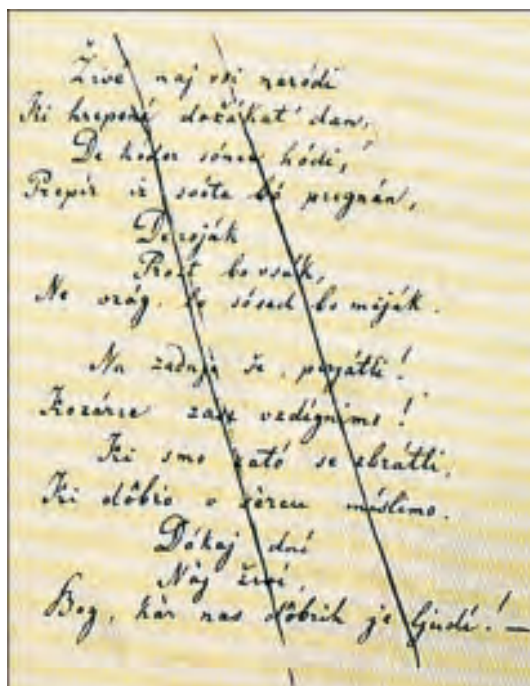 Žive naj vsi naródi
Ki hrepené dočákat' dan,
De koder sónce hódi,
Prepír iz svéta bó pregnán,
De roják
Prost bo vsák,
Ne vrág, le sósed bo meják.
Na zadnje še, prijátli!
Kozárce zase vzdignimo!
Ki smo zató se zbrátli,
Ki dôbro v sèrcu mislimo.
Dókaj dní
Nàj živí
Bog, kàr nas dôbrih je ljudí! —